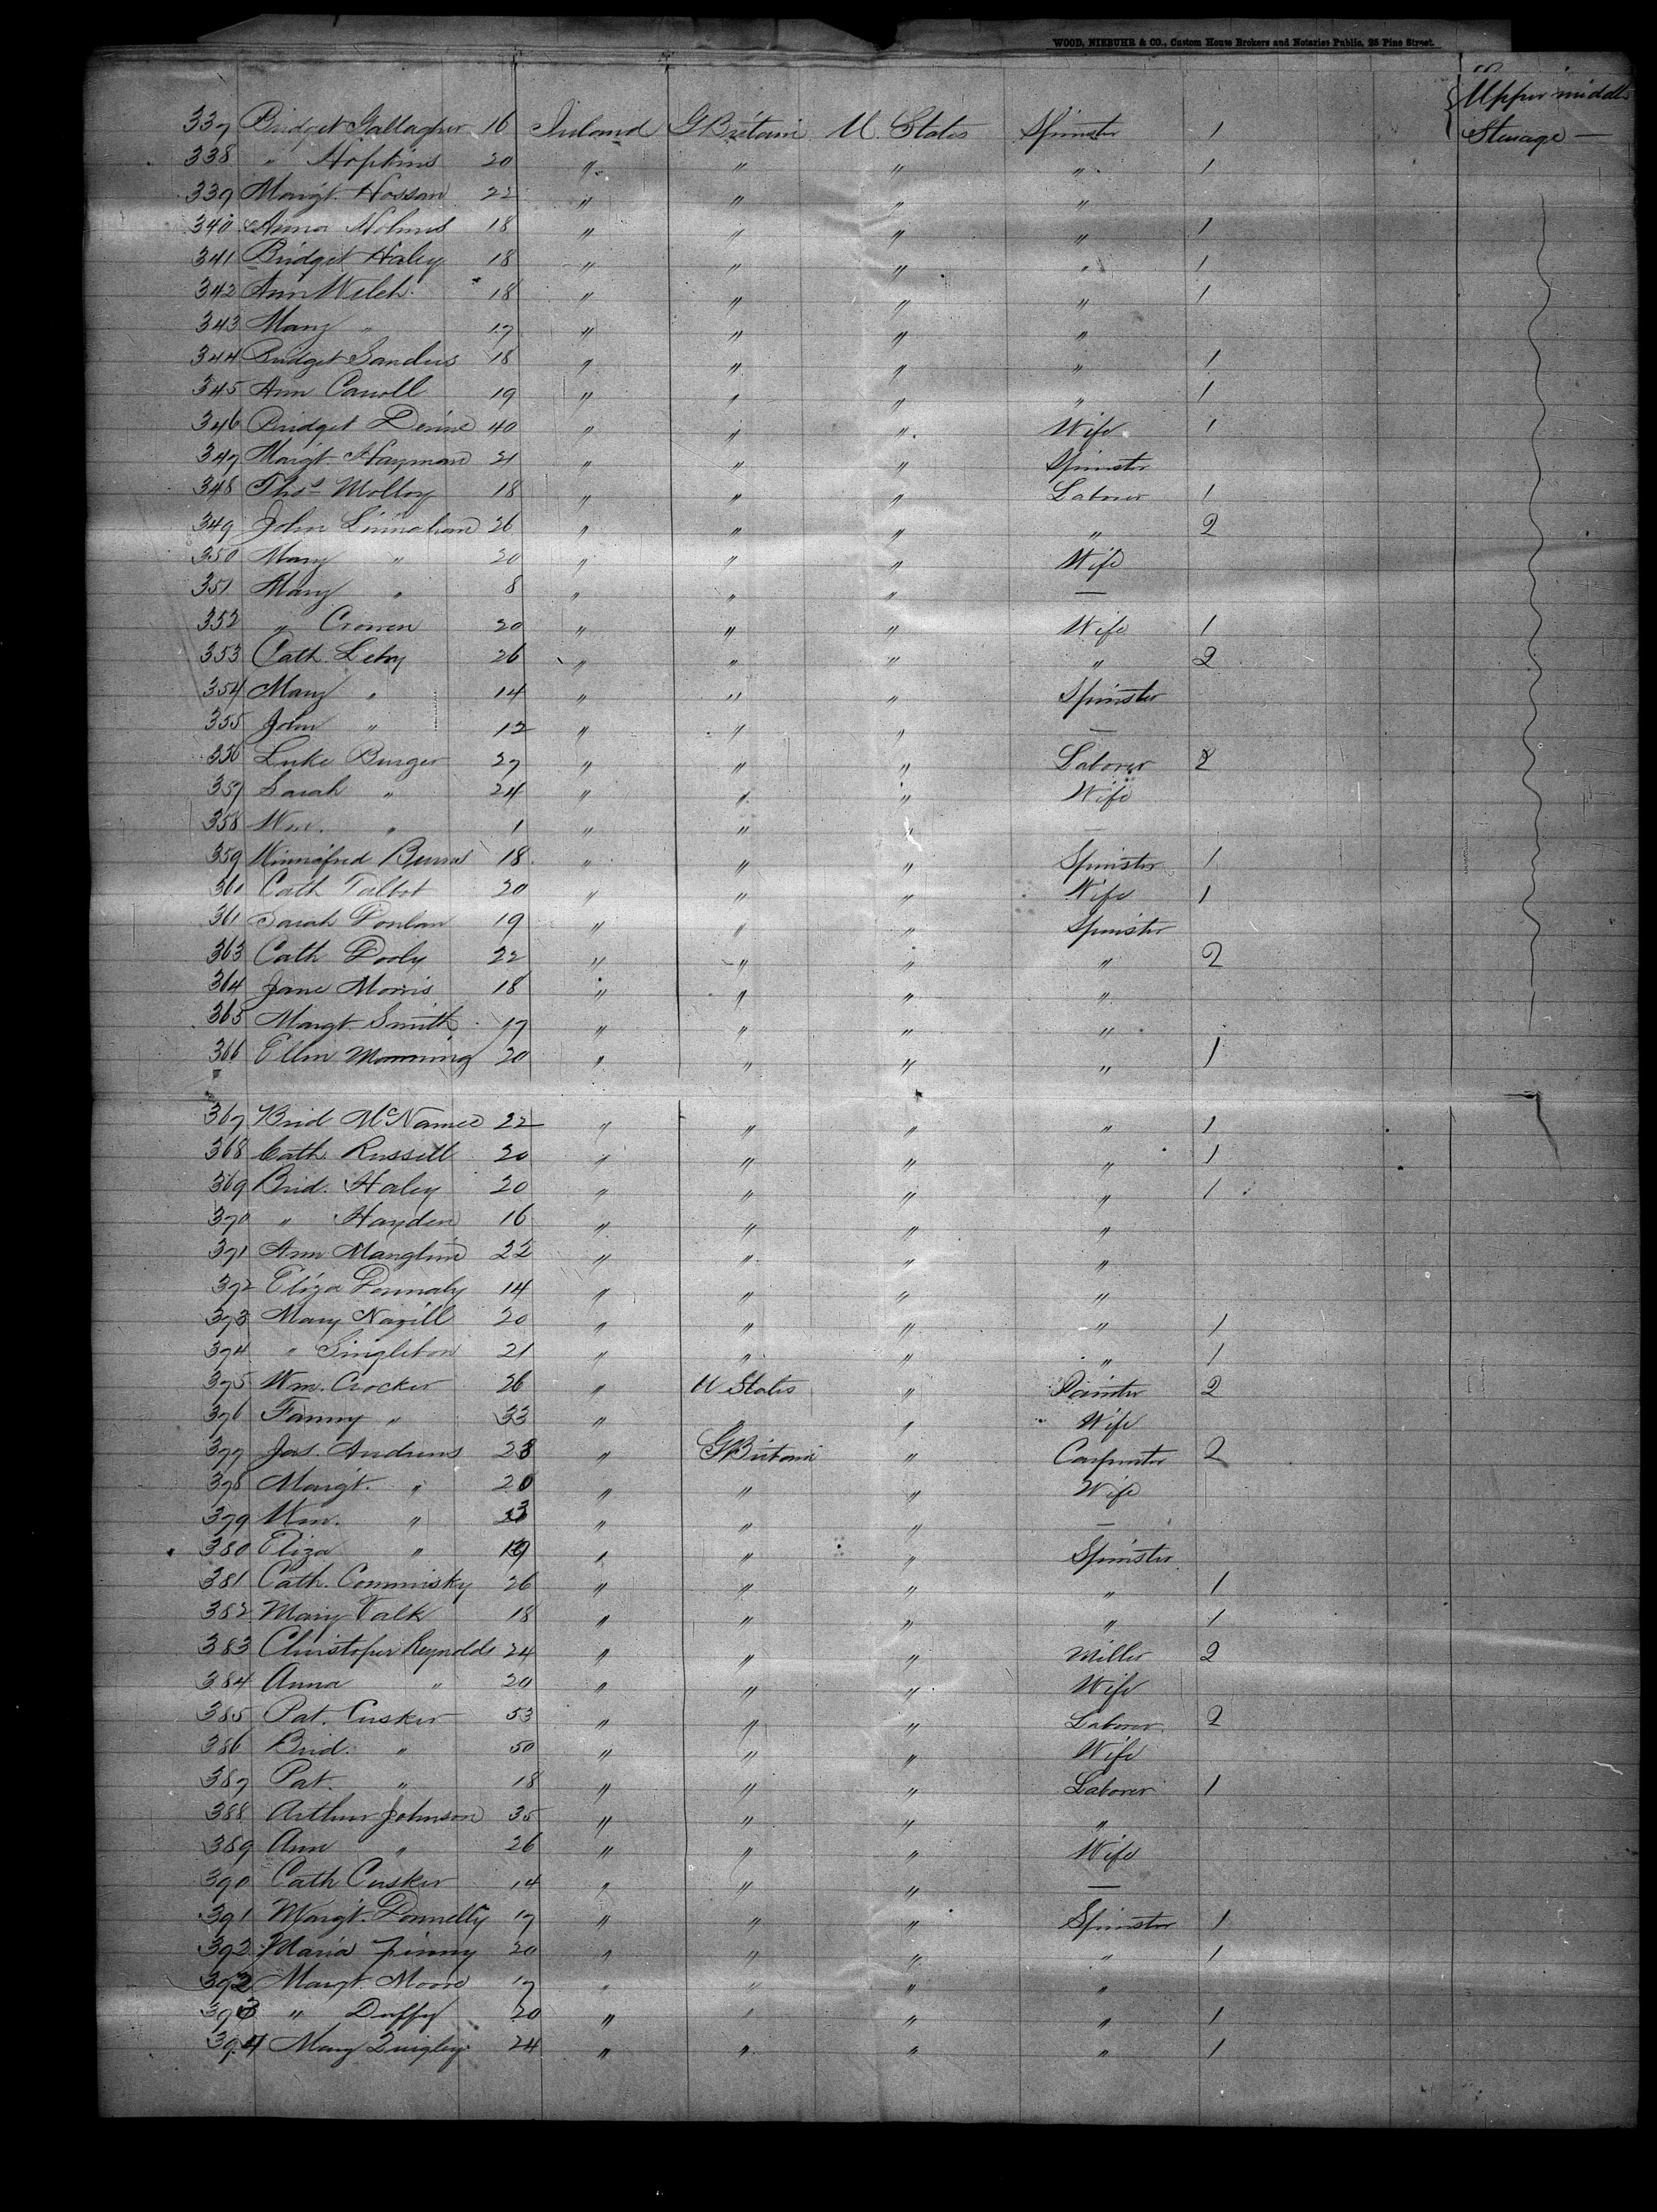 WOOD, NIEBUHR & CO., Custom House Brokers and Notaries Public, 25 Pine Street.
Upper middle
337 Bridget Gallagher 16 Ireland GBritain U. States Spinster 1 Steerage —
338 " Hopkins 20 " " " " 1
339 Margt. Hossan 22 " " " "
340 Anna Holmes 18 " " " " 1
341 Bridget Haley 18 " " " " 1
342 Ann Welch 18 " " " " 1
343 Mary " 17 " " " "
344 Bridget Sanders 18 " " " " 1
345 Ann Carroll 19 " " " " 1
346 Bridget Devine 40 " " " Wife 1
347 Margt. Hayman 21 " " " Spinster
348 Thos Molloy 18 " " " Laborer 1
349 John Linnahan 26 " " " " 2
350 Mary " 20 " " " Wife
351 Mary " 8 " " " —
352 " Cronen 20 " " " Wife 1
353 Cath. Lehy 26 " " " " 2
354 Mary " 14 " " " Spinster
355 John " 12 " " " —
356 Luke Burger 27 " " " Laborer 2
357 Sarah " 24 " " " Wife
358 Wm. " 1 " " " —
359 Winnifred Burns 18 " " " Spinster 1
361 Cath Talbot 20 " " " Wife 1
361 Sarah Donlan 19 " " " Spinster
363 Cath Dooly 22 " " " " 2
364 Jane Morris 18 " " " "
365 Margt. Smith 17 " " " "
366 Ellen Manning 20 " " " " 1
367 Brid McNamee 22 " " " " 1
368 Cath Russell 20 " " " " 1
369 Brid. Haley 20 " " " " 1
370 " Hayden 16 " " " "
371 Ann Manglin 22 " " " "
372 Eliza Donnaly 14 " " " "
373 Mary Nagill 20 " " " " 1
374 " Singleton 21 " " " " 1
375 Wm. Crocker 26 " U States " Painter 2
376 Fanny " 33 " " " Wife
377 Jas. Andrews 28 " GBritain " Carpenter 2
378 Margt. " 20 " " " Wife
379 Wm. " " " " —
380 Eliza " 19 " " " Spinster
381 Cath. Commisky 26 " " " " 1
382 Mary Valk 18 " " " " 1
383 Christofer Reynolds 24 " " " Miller 2
384 Anna " 20 " " " Wife
385 Pat. Cusker 53 " " " Laborer 2
386 Brid. " 50 " " " Wife
387 Pat. " 18 " " " Laborer 1
388 Arthur Johnson 35 " " " "
389 Ann " 26 " " " Wife
390 Cath Cusker 14 " " " —
391 Margt. Donnelly 17 " " " Spinster 1
392 Maria Finny 20 " " " " 1
392 Margt. Moore 17 " " " "
393 " Duffy 20 " " " " 1
394 Mary Quigley 24 " " " " 1